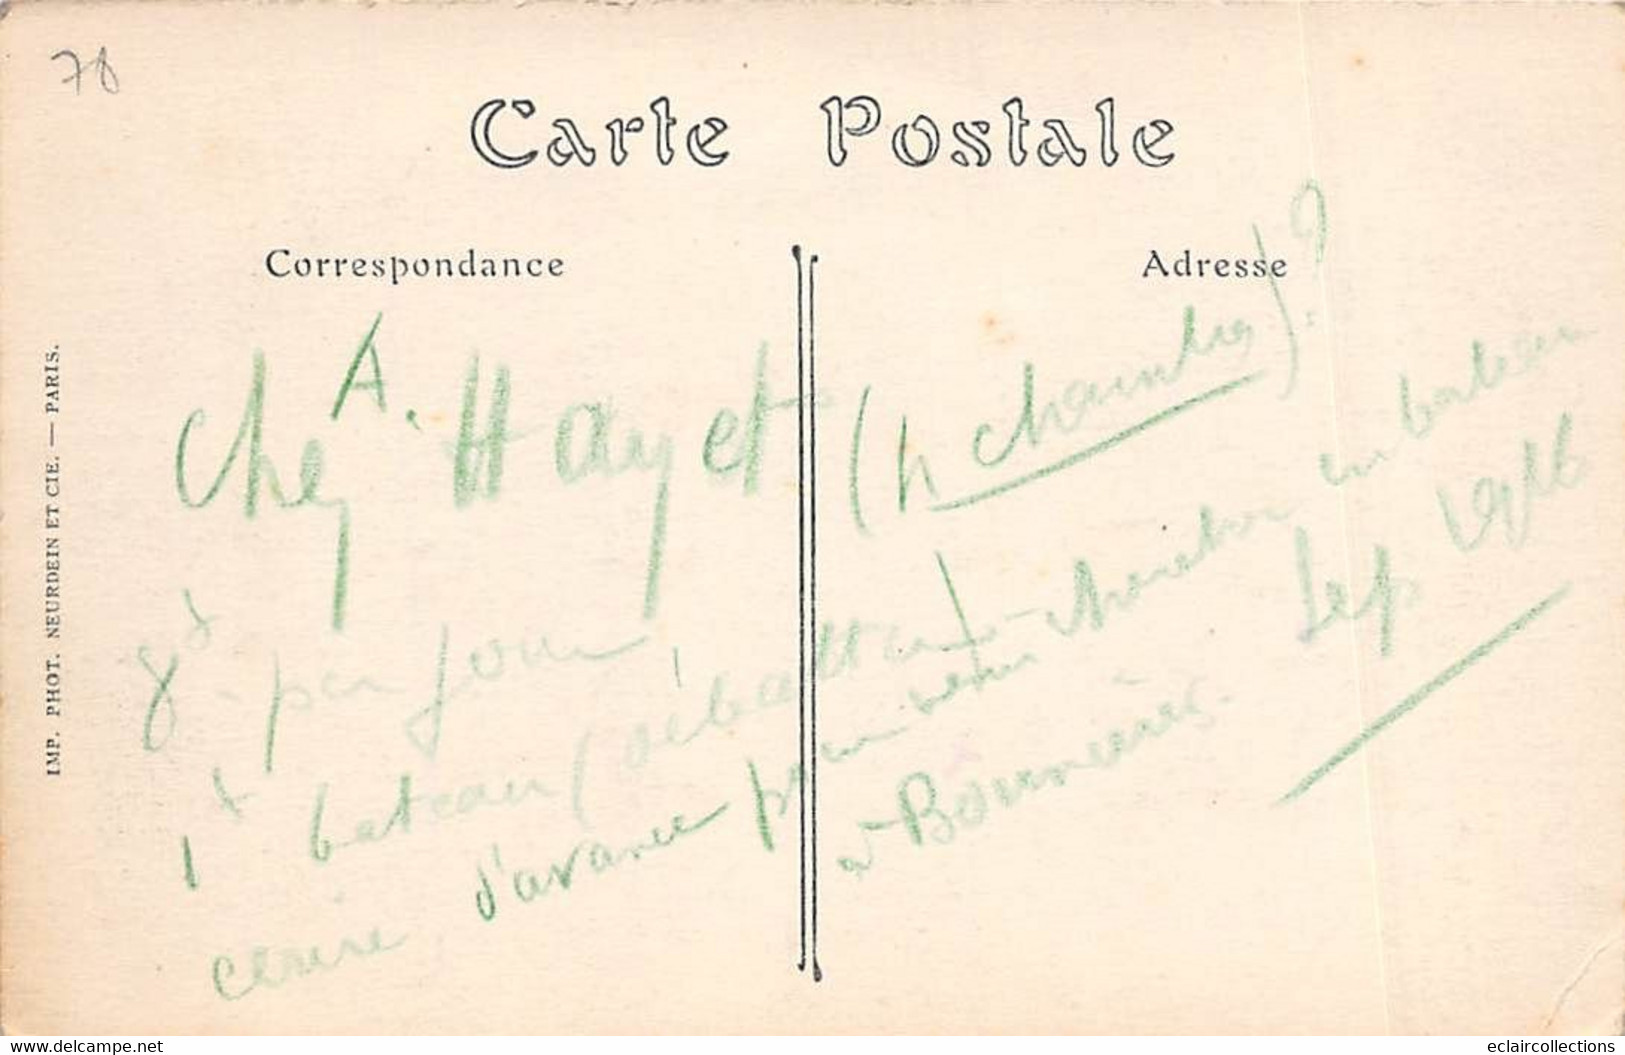 78
Carte Postale
Correspondance
Adresse
IMP. PHOT. NEURDEIN ET CIE. — PARIS.
Chez A. Hayet (4 chambres)?
8 par jour
1 bateau (débattu)
écrire d'avance pr venir chercher en bateau
à Bonnières.
Sep 1926
www.delcampe.net
eclaircollections